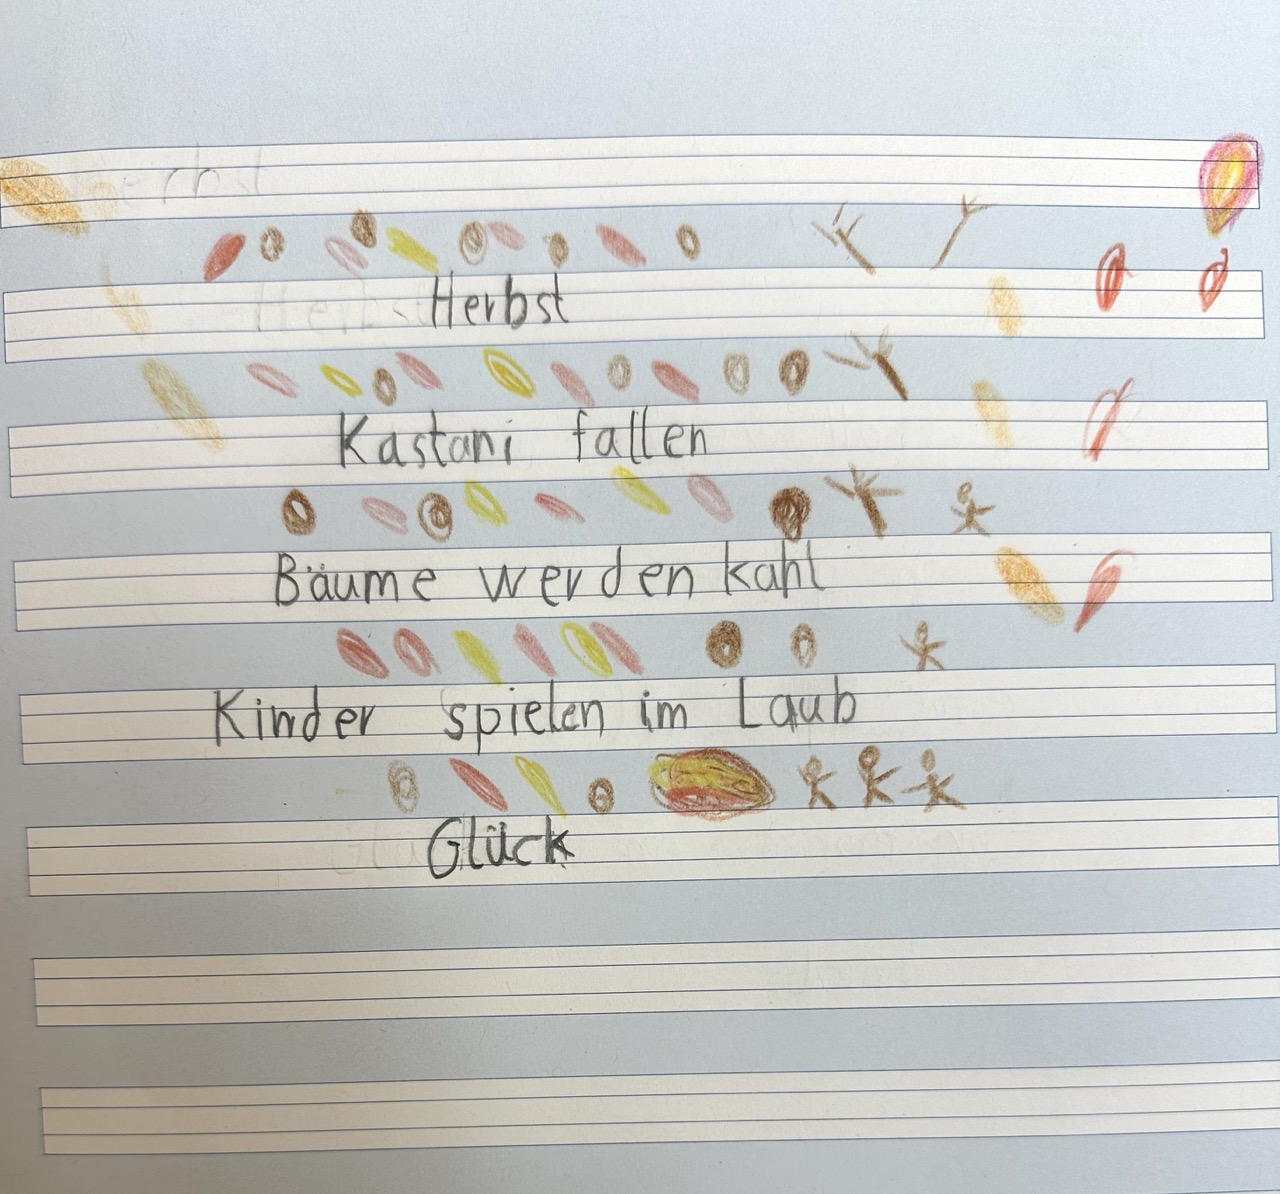 Herbst
Kastani fallen
Bäume werden kahl
Kinder spielen im Laub
Glück